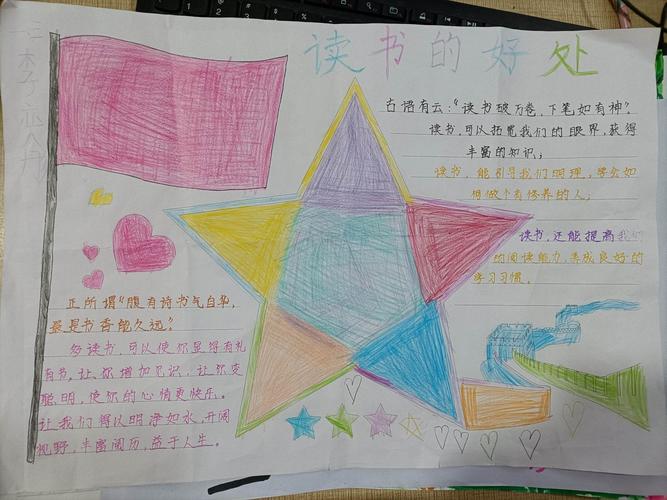 读书的好处
古语有云："读书破万卷，下笔如有神"。
读书，可以拓宽我们的眼界，获得
丰富的知识；
读书，能引导我们明理，学会如
何做个有修养的人；
读书，还能提高我们
的阅读能力，养成良好的
学习习惯。
正所谓"腹有诗书气自华，
最是书香能久远。"
多读书，可以使你显得有礼
有节，让你增加见识，让你变
聪明，使你的心情更快乐。
让我们得以明净如水，开阔
视野，丰富阅历，益于人生。